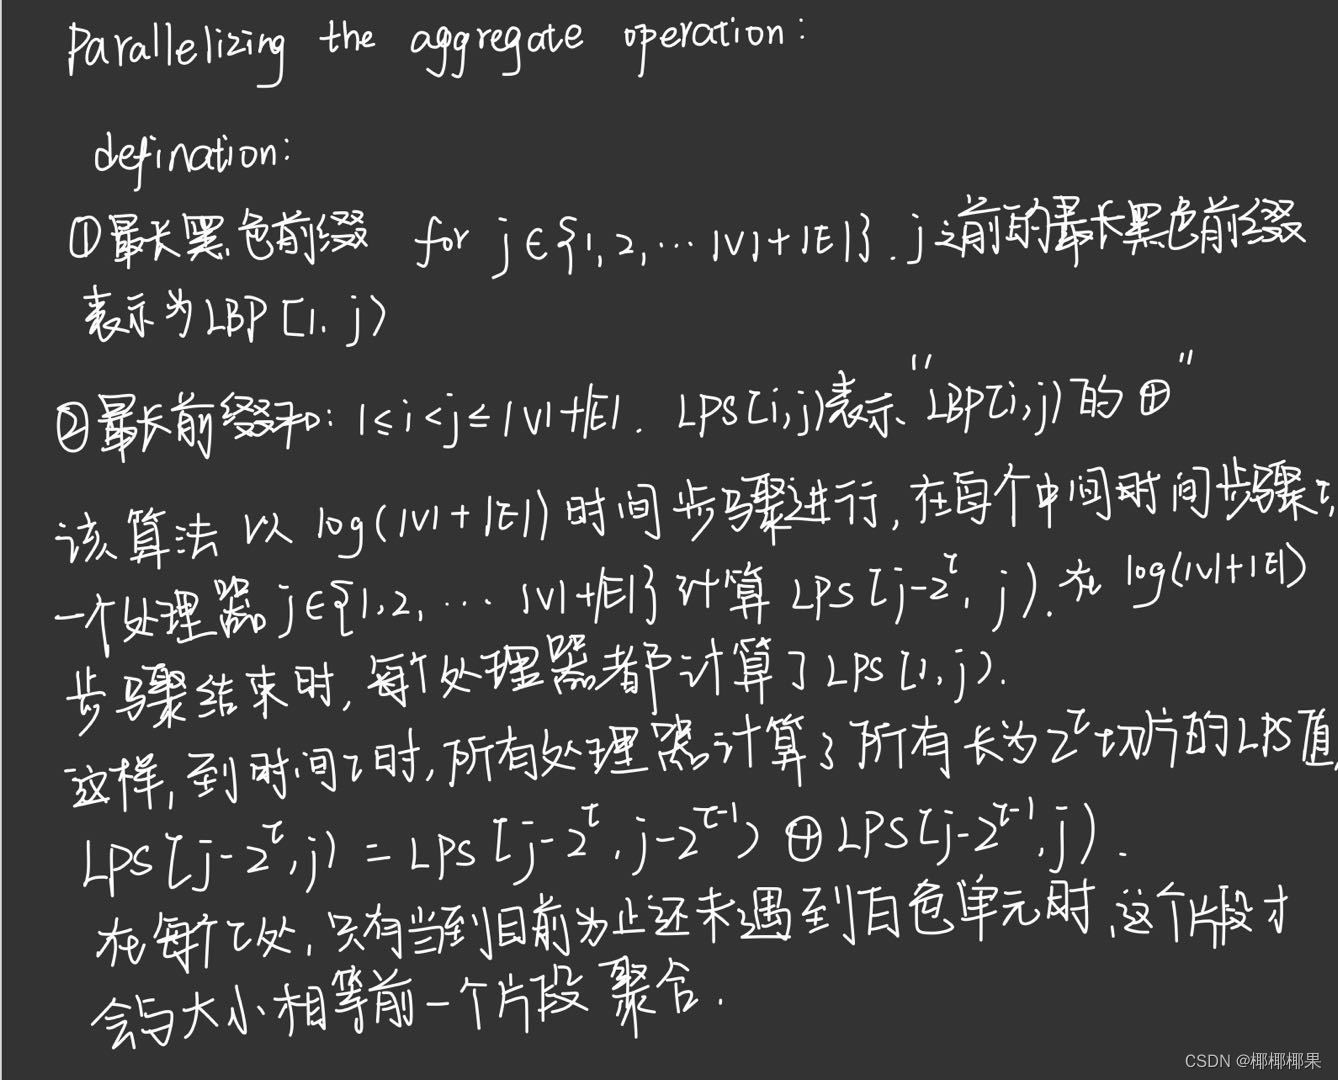 Parallelizing the aggregate operation:
defination:
①最长黑色前缀 for j∈{1,2,…|V|+|E|}. j之前的最长黑色前缀
表示为LBP[1, j)
②最长前缀和: 1≤i<j≤|V|+|E|. LPS[i,j)表示"LBP[i,j)的⊕"
该算法以log(|V|+|E|)时间步骤进行,在每个中间时间步骤τ,
一个处理器j∈{1,2,…|V|+|E|}计算LPS[j-2^τ, j).在log(|V|+|E|)
步骤结束时,每个处理器都计算了LPS[1,j).
这样,到时间τ时,所有处理器计算了所有长为2^τ切片的LPS值,
LPS[j-2^τ,j) = LPS[j-2^τ,j-2^τ-1) ⊕ LPS[j-2^τ-1,j).
在每个τ处,只有当到目前为止还未遇到白色单元时,这个片段才
会与大小相等前一个片段聚合.
CSDN @椰椰椰果